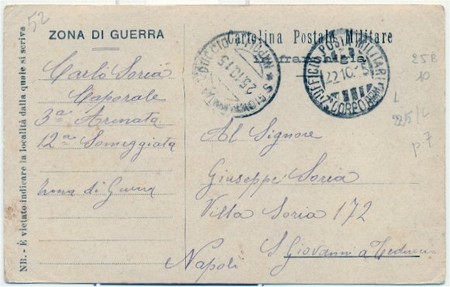 52
ZONA DI GUERRA
Carlo Soria
Caporale
3ª Armata
12ª Someggiata
Zona di Guerra
NB. - È vietato indicare la località dalla quale si scrive
Cartolina Postale Militare
in franchigia
23.10.15
UFFICIO POSTA MILITARE
22.10.15
CORPO
25B
10
p 7
Al Signore
Giuseppe Soria
Villa Soria 172
S Giovanni a Teduccio
Napoli